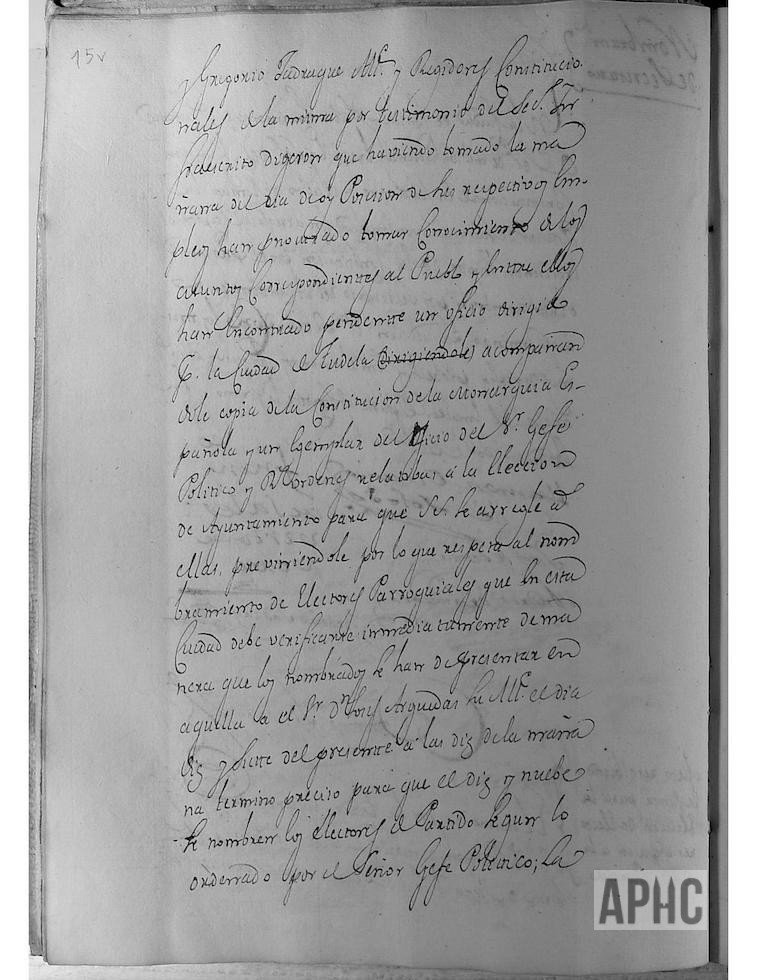 15v
y Gregorio Tadrague All.e y Regidores Constitucio-
nales de la misma por testimonio del Sec.o In-
fraescrito Digeron que haviendo tomado la ma
ñana del dia de oy Posesion de sus respectivos Em-
pleos han procurado tomar Conocimiento de los
asuntos Correspondientes al Pueblo y entre ellos
han Encontrado pendiente un oficio dirigido
p.r la Ciudad de Tudela dirigiendole acompañan
dole copia de la Constitucion de la Monarquia Es-
pañola y un Egemplar del oficio del S.r Gefe
Politico y R.s ordenes relatibas á la Eleccion
de Ayuntamiento para que SS. se arregle a
ellas, previniendole por lo que respeta al nom
bramiento de Electores Parroquiales que en esta
Ciudad debe verificarse inmediatamente de ma
nera que los nombrados se han de presentar en
aquella a el S.r D.n Josef Arguedas su All.e el dia
diez y siete del presente á las diez de la maña
na termino preciso para que el diez y nuebe
se nombren los electores de Partido segun lo
ordenado por el Señor Gefe Politico; La
APHC